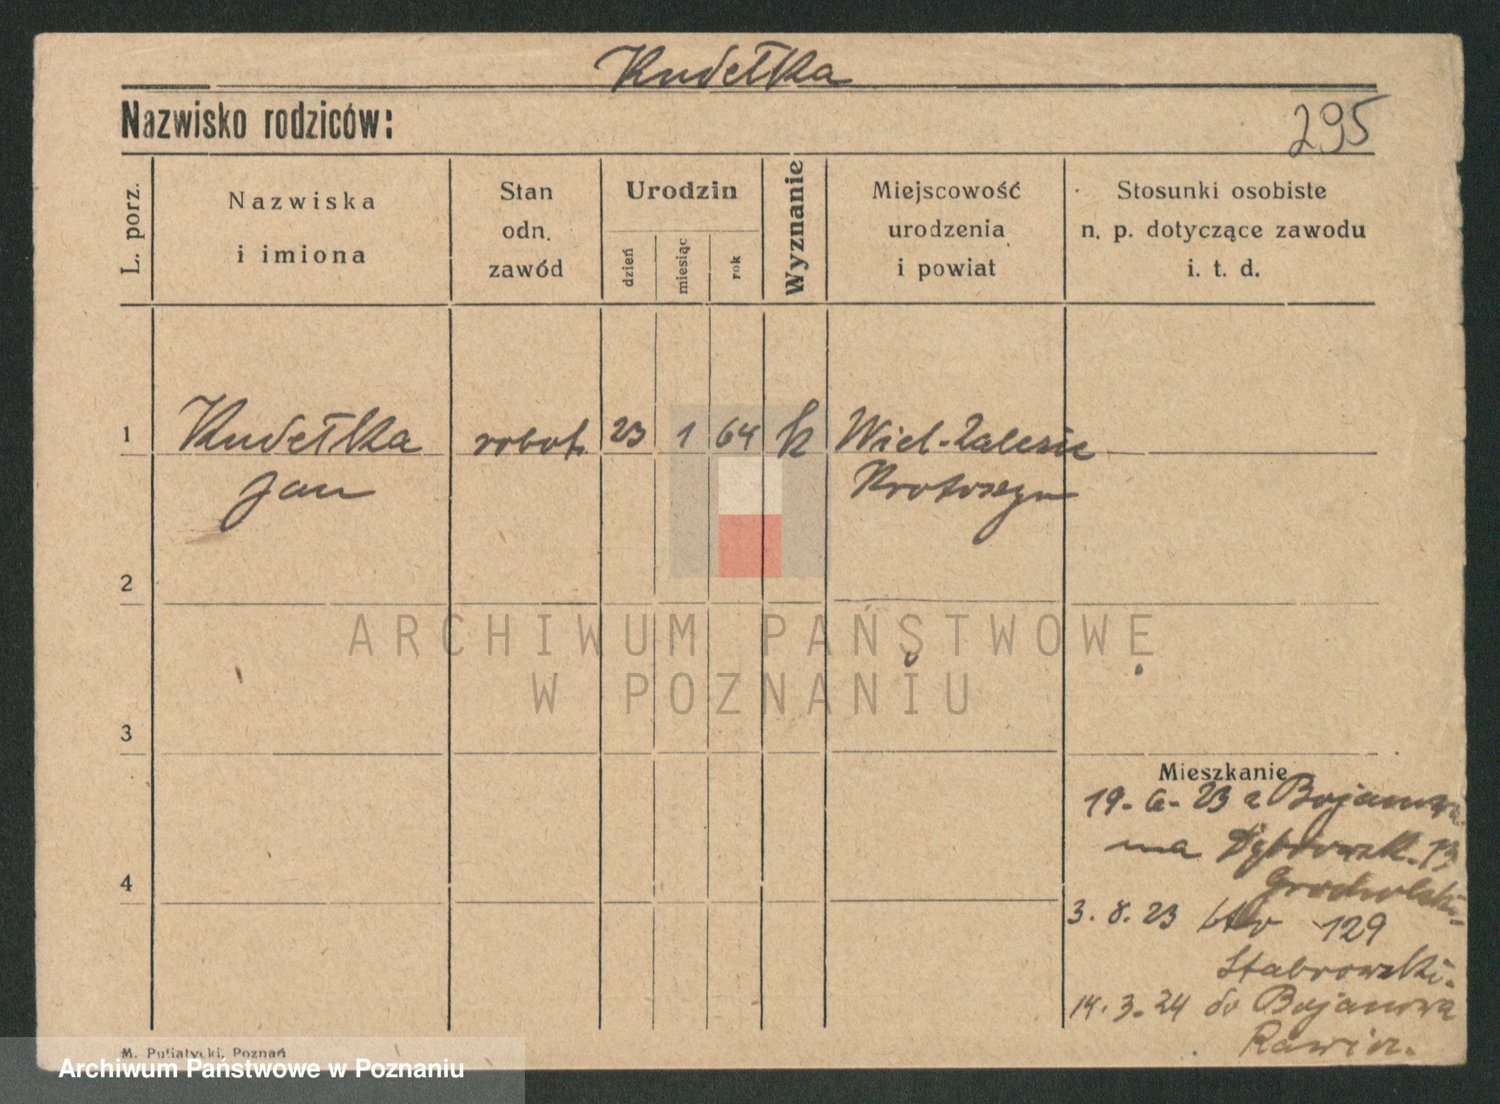 Kudełka
Nazwisko rodziców:
295
L. porz.
Nazwiska
i imiona
Stan
odn.
zawód
Urodzin
dzień
miesiąc
rok
Wyznanie
Miejscowość
urodzenia
i powiat
Stosunki osobiste
n. p. dotyczące zawodu
i. t. d.
1 Kudełka robot. 23 1 64 k Wiel-Zalesie
Jan Krotoszyn
2
ARCHIWUM PAŃSTWOWE
W POZNANIU
3
Mieszkanie
19.6.23 z Bojanowa
na 13
Grocholski
4
3.8.23 129
Stabrowski.
14.3.24 do Bojanowa
Rawicz.
M. Putiatycki, Poznań
Archiwum Państwowe w Poznaniu